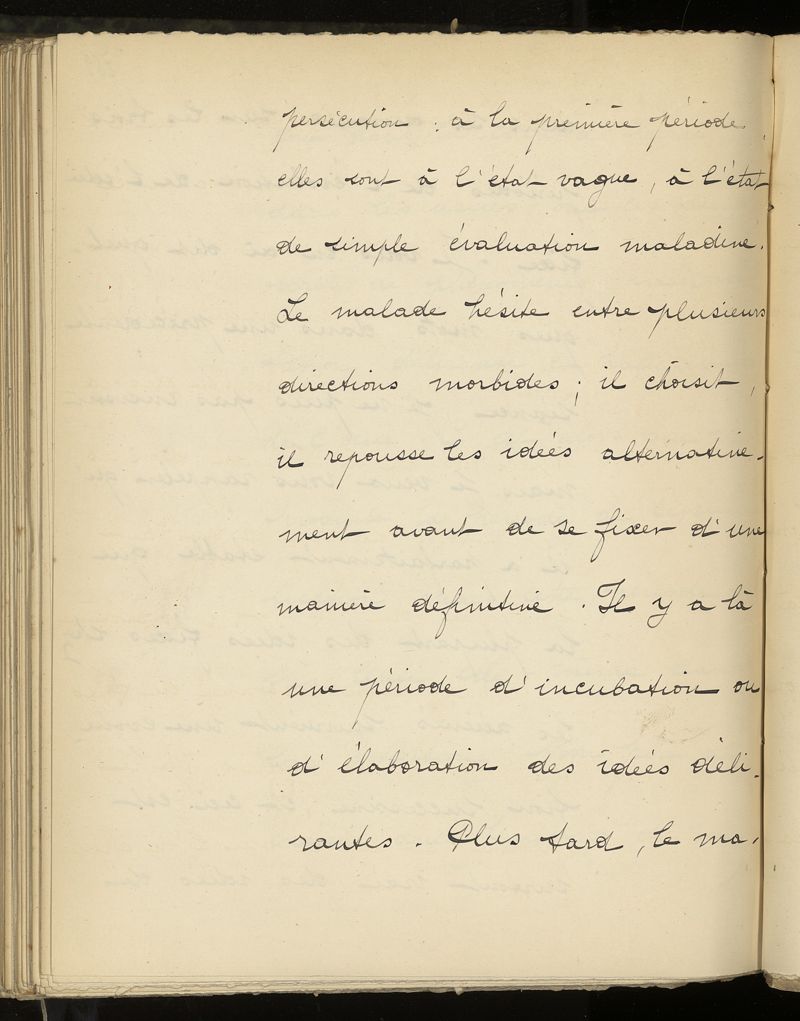 persécution : à la première période,
elles sont à l'état vague, à l'état
de simple évaluation maladive.
Le malade hésite entre plusieurs
directions morbides ; il choisit,
il repousse les idées alternative-
ment avant de se fixer d'une
manière définitive. Il y a là
une période d'incubation ou
d'élaboration des idées déli-
rantes. Plus tard, le ma-